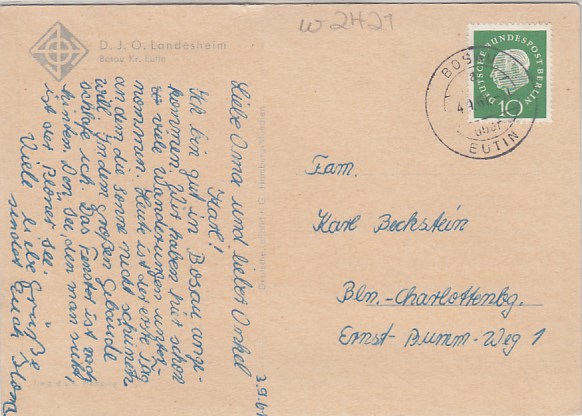 W 2H21
D. J. O. Landesheim
Bosau Kr. Eutin
DEUTSCHE BUNDESPOST BERLIN
10
BOS
über
EUTIN
3.9.61
Liebe Oma und lieber Onkel
Karl!
Ich bin gut in Bosau ange-
kommen. Wir haben hier schon
viele Wanderungen unter-
nommen. Heute ist der erste Tag
an dem die Sonne nicht scheinen
will. In dem großen Gebäude
schlafe ich. Das Fenster ist nach
hinten. Den See, den man sieht,
ist der Plöner See.
Viele liebe Grüße
sendet Euch
Fam.
Karl Beckstein
Bln.-Charlottenbg.
Ernst-Bumm-Weg 1